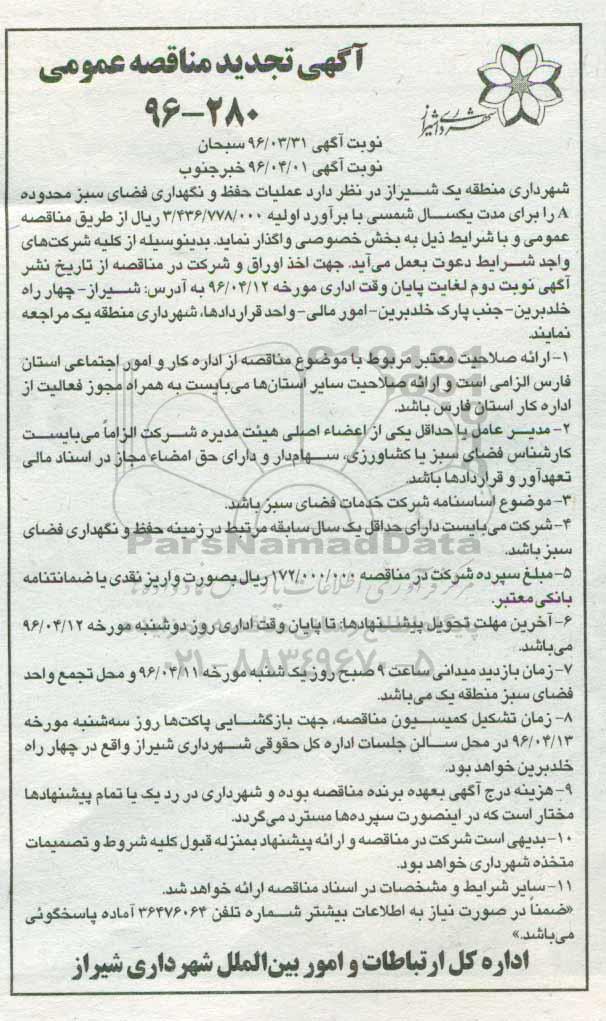 آگهی تجدید مناقصه عمومی
۹۶-۲۸۰
شهرداری شیراز
نوبت آگهی ۹۶/۰۳/۳۱ سبحان
نوبت آگهی ۹۶/۰۴/۰۱ خبرجنوب
شهرداری منطقه یک شیراز در نظر دارد عملیات حفظ و نگهداری فضای سبز محدوده
A را برای مدت یکسال شمسی با برآورد اولیه ۳/۴۳۶/۷۷۸/۰۰۰ ریال از طریق مناقصه
عمومی و با شرایط ذیل به بخش خصوصی واگذار نماید. بدینوسیله از کلیه شرکت‌های
واجد شرایط دعوت بعمل می‌آید. جهت اخذ اوراق و شرکت در مناقصه از تاریخ نشر
آگهی نوبت دوم لغایت پایان وقت اداری مورخه ۹۶/۰۴/۱۲ به آدرس: شیراز- چهار راه
خلدبرین- جنب پارک خلدبرین- امور مالی- واحد قراردادها، شهرداری منطقه یک مراجعه
نمایند.
۱- ارائه صلاحیت معتبر مربوط با موضوع مناقصه از اداره کار و امور اجتماعی استان
فارس الزامی است و ارائه صلاحیت سایر استان‌ها می‌بایست به همراه مجوز فعالیت از
اداره کار استان فارس باشد.
۲- مدیر عامل یا حداقل یکی از اعضاء اصلی هیئت مدیره شرکت الزاماً می‌بایست
کارشناس فضای سبز یا کشاورزی، سهام‌دار و دارای حق امضاء مجاز در اسناد مالی
تعهدآور و قراردادها باشد.
۳- موضوع اساسنامه شرکت خدمات فضای سبز باشد.
۴- شرکت می‌بایست دارای حداقل یک سال سابقه مرتبط در زمینه حفظ و نگهداری فضای
سبز باشد.
ParsNamadData
۵- مبلغ سپرده شرکت در مناقصه ۱۷۲/۰۰۰/۰۰۰ ریال بصورت واریز نقدی یا ضمانتنامه
بانکی معتبر.
۶- آخرین مهلت تحویل پیشنهادها: تا پایان وقت اداری روز دوشنبه مورخه ۹۶/۰۴/۱۲
می‌باشد.
۰۲۱-۸۸۳۴۹۶۷۰-۵
۷- زمان بازدید میدانی ساعت ۹ صبح روز یک شنبه مورخه ۹۶/۰۴/۱۱ و محل تجمع واحد
فضای سبز منطقه یک می‌باشد.
۸- زمان تشکیل کمیسیون مناقصه، جهت بازگشایی پاکت‌ها روز سه‌شنبه مورخه
۹۶/۰۴/۱۳ در محل سالن جلسات اداره کل حقوقی شهرداری شیراز واقع در چهار راه
خلدبرین خواهد بود.
۹- هزینه درج آگهی بعهده برنده مناقصه بوده و شهرداری در رد یک یا تمام پیشنهادها
مختار است که در اینصورت سپرده‌ها مسترد می‌گردد.
۱۰- بدیهی است شرکت در مناقصه و ارائه پیشنهاد بمنزله قبول کلیه شروط و تصمیمات
متخذه شهرداری خواهد بود.
۱۱- سایر شرایط و مشخصات در اسناد مناقصه ارائه خواهد شد.
«ضمناً در صورت نیاز به اطلاعات بیشتر شماره تلفن ۳۶۴۷۶۰۶۴ آماده پاسخگوئی
می‌باشد.»
اداره کل ارتباطات و امور بین‌الملل شهرداری شیراز